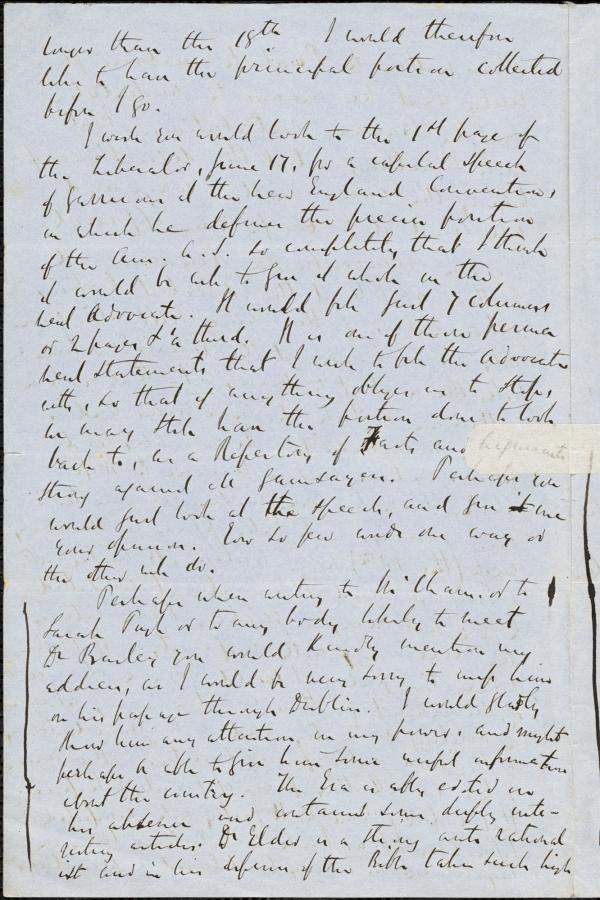 longer than the 18th I would therefore
like to have the principal portion collected
before I go.
I wish you would look to the 1st page of
the Liberator, June 17, for a capital speech
of Garrison at the New England Convention,
in which he defines the precise position
of the Am. A.S. so completely that I think
it would be well to give it whole in the
next Advocate. It would fill just 7 columns
or 2 pages & a third. It is one of those perma
nent statements that I wish to fill the Advocate
with, so that if any thing obliges us to stop,
we may still have the portion done to look
back to, as a Repertory of Facts and Arguments
strong against all gainsayers. Perhaps you
would just look at the speech, and give me
your opinion. Ever so few words one way or
the other will do.
Perhaps when writing to Mr Chamerovzow or to
Sarah Pugh or to any body likely to meet
Dr Bailey you would kindly mention my
address, as I would be very sorry to miss him
on his passage through Dublin. I would gladly
show him any attention in my power, and might
perhaps be able to give him some useful information
about the country. The Era is ably edited in
his absence and contains some deeply inte-
resting articles. Dr Elder is a strong anti rational
ist and in his defence of the Bible takes such high